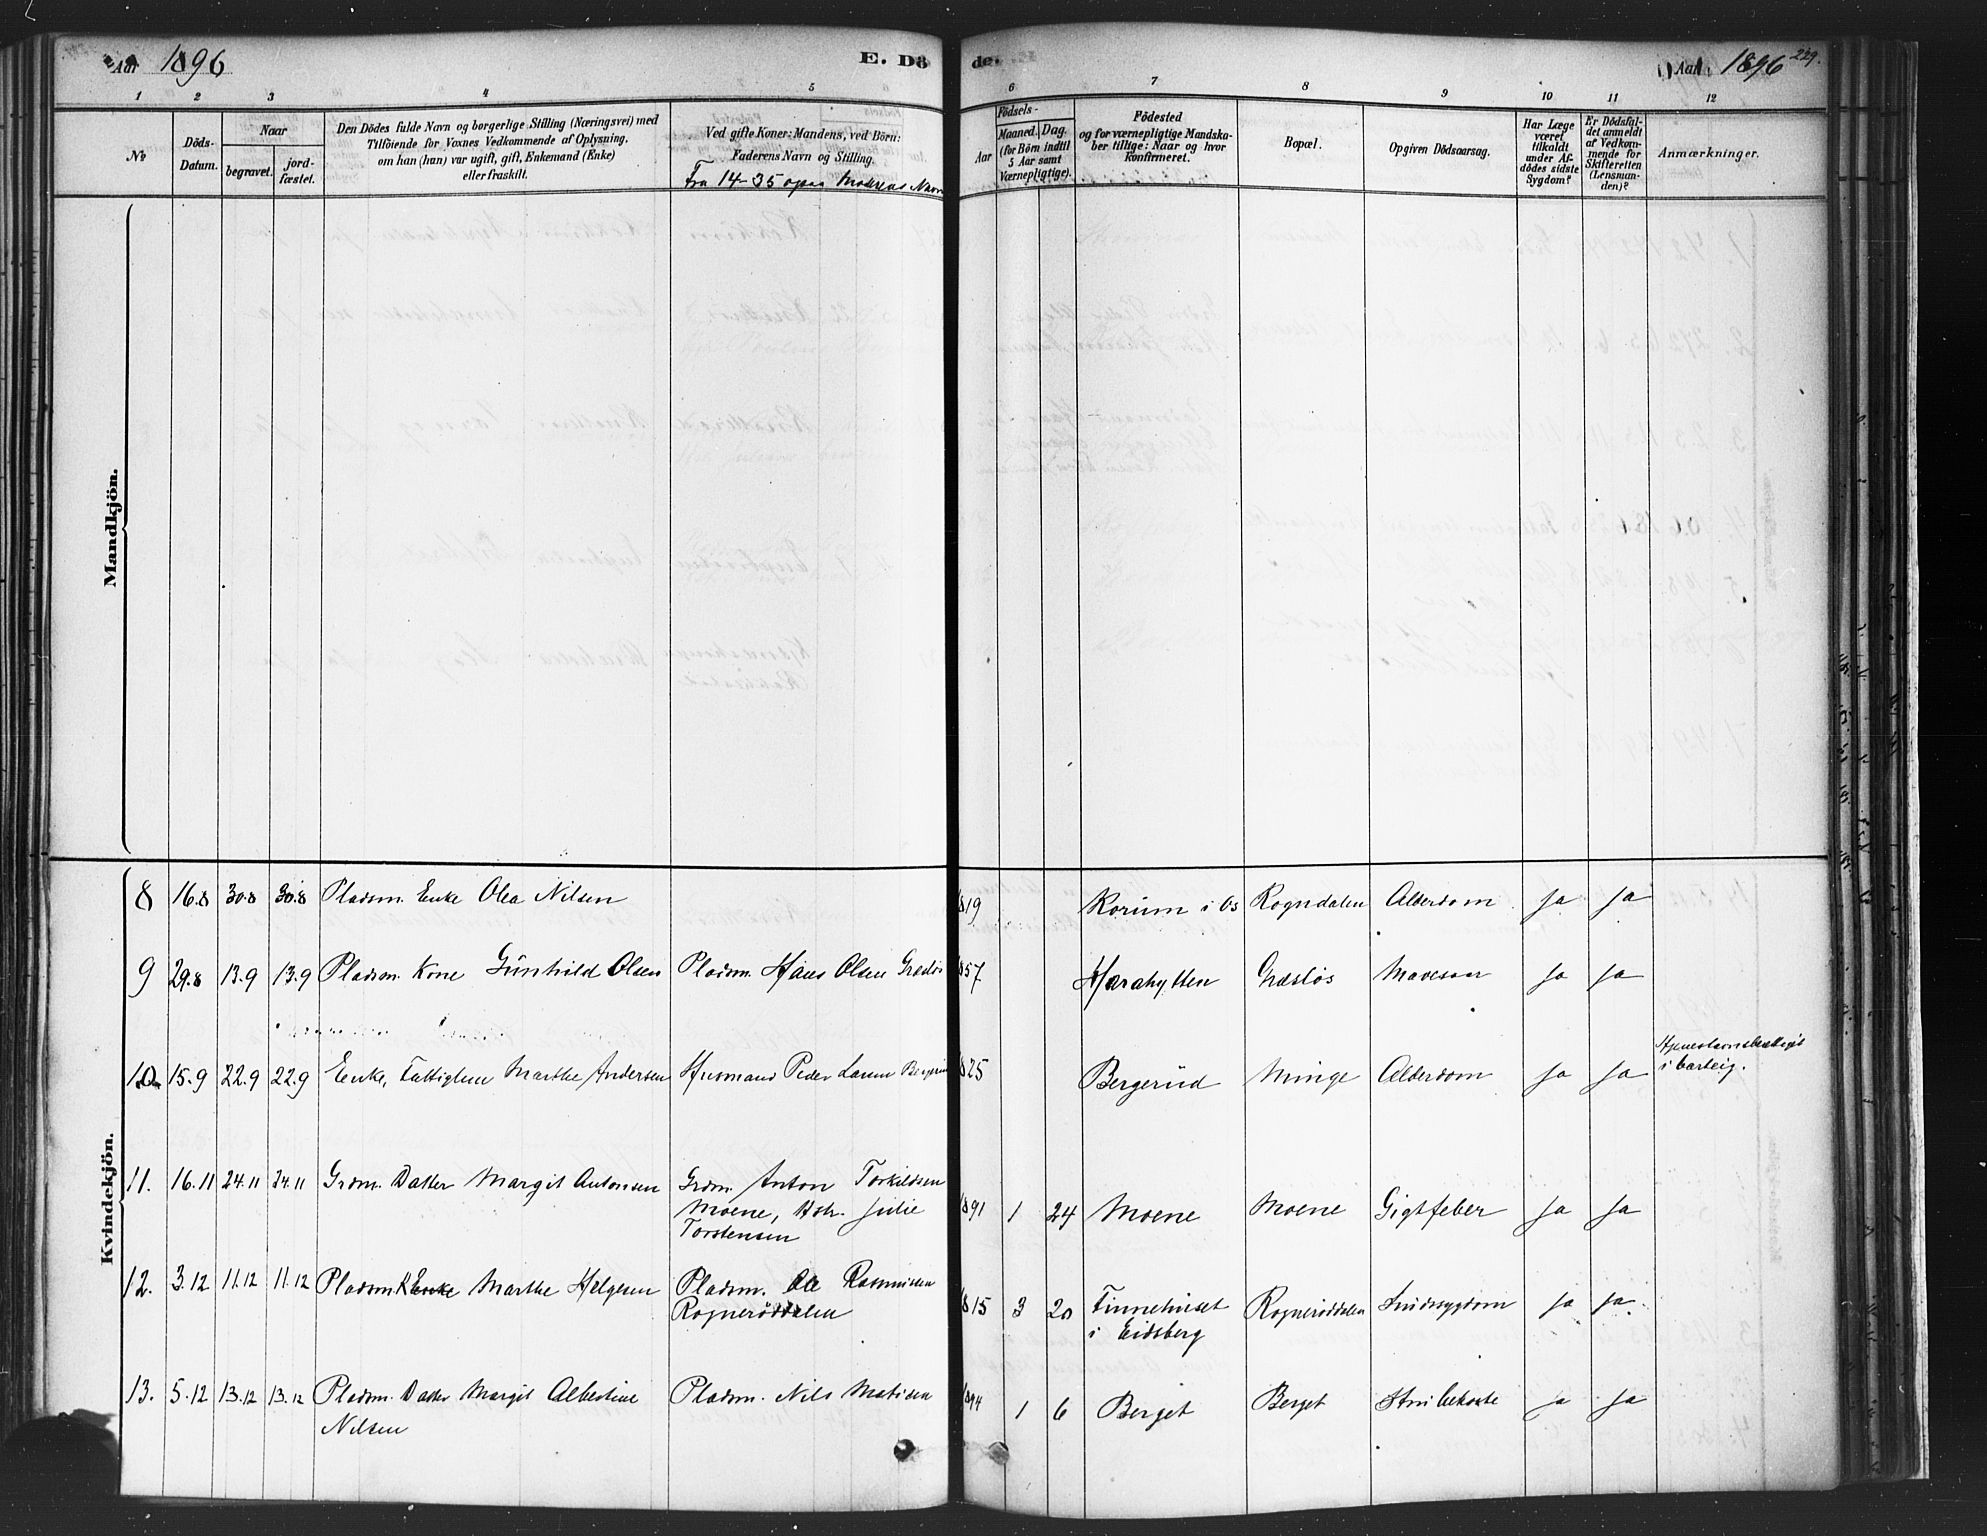 Aar 1896
E. Dö
de.
Aar 1896
229.
1 2 3 4 5 6 7 8 9 10 11 12
No
Döds-
Datum.
Naar
begravet.
jord-
fæstet.
Den Dödes fulde Navn og borgerlige Stilling (Næringsvei) med
Tilföiende for Voxnes Vedkommende af Oplysning.
om han (hun) var ugift, gift, Enkemand (Enke)
eller fraskilt.
Ved gifte Koner: Mandens, ved Börn:
Faderens Navn og Stilling.
Fra 14-35 ogsaa Moderens Navn
Födsels-
Aar
Maaned.
Dag.
(for Börn indtil
5 Aar samt
Værnepligtige).
Födested
og for værnepligtige Mandska-
ber tillige: Naar og hvor
konfirmeret.
Bopæl.
Opgiven Dödsaarsag.
Har Læge
været
tilkaldt
under Af-
dödes sidste
Sygdom?
Er Dödsfal-
det anmeldt
af Vedkom-
mende for
Skifteretten
(Lensman-
den)?
Anmærkninger.
Mandkjön.
Kvindekjön.
8 16.8 30.8 30.8 Pladsm. Enke Olea Nilsen 1819 Korum i Os Rogndalen Alderdom Ja Ja
9 29.8 13.9 13.9 Pladsm. Kone Gunhild Olsen Pladsm. Hans Olsen Græsløs 1857 Harahytten Græsløs Mavesaar Ja Ja
10. 15.9 22.9 22.9 Enke, Fattiglem Marthe Andersen Husmand Peder Larsen Bergerud 1825 Bergerud Minge Alderdom Ja Ja
i Varteig.
11. 16.11 24.11 24.11 Grdm. Datter Margit Antonsen Grdm. Anton Torkildsen 1891 1 24 Moene Moene Gigtfeber Ja Ja
Moene, Hstr. Julie
Torstensen
12. 3.12 11.12 11.12 Pladsm. Enke Marthe Helgesen Pladsm. Ole Rasmussen 1815 3 20 Finnehuset Rogneröddalen Ja Ja
Rogneröddalen
i Eidsberg
13. 5.12 13.12 13.12 Pladsm. Datter Margit Albertine Pladsm. Nils Matisen 1894 1 6 Berget Berget Strubehoste Ja Ja
Nilsen